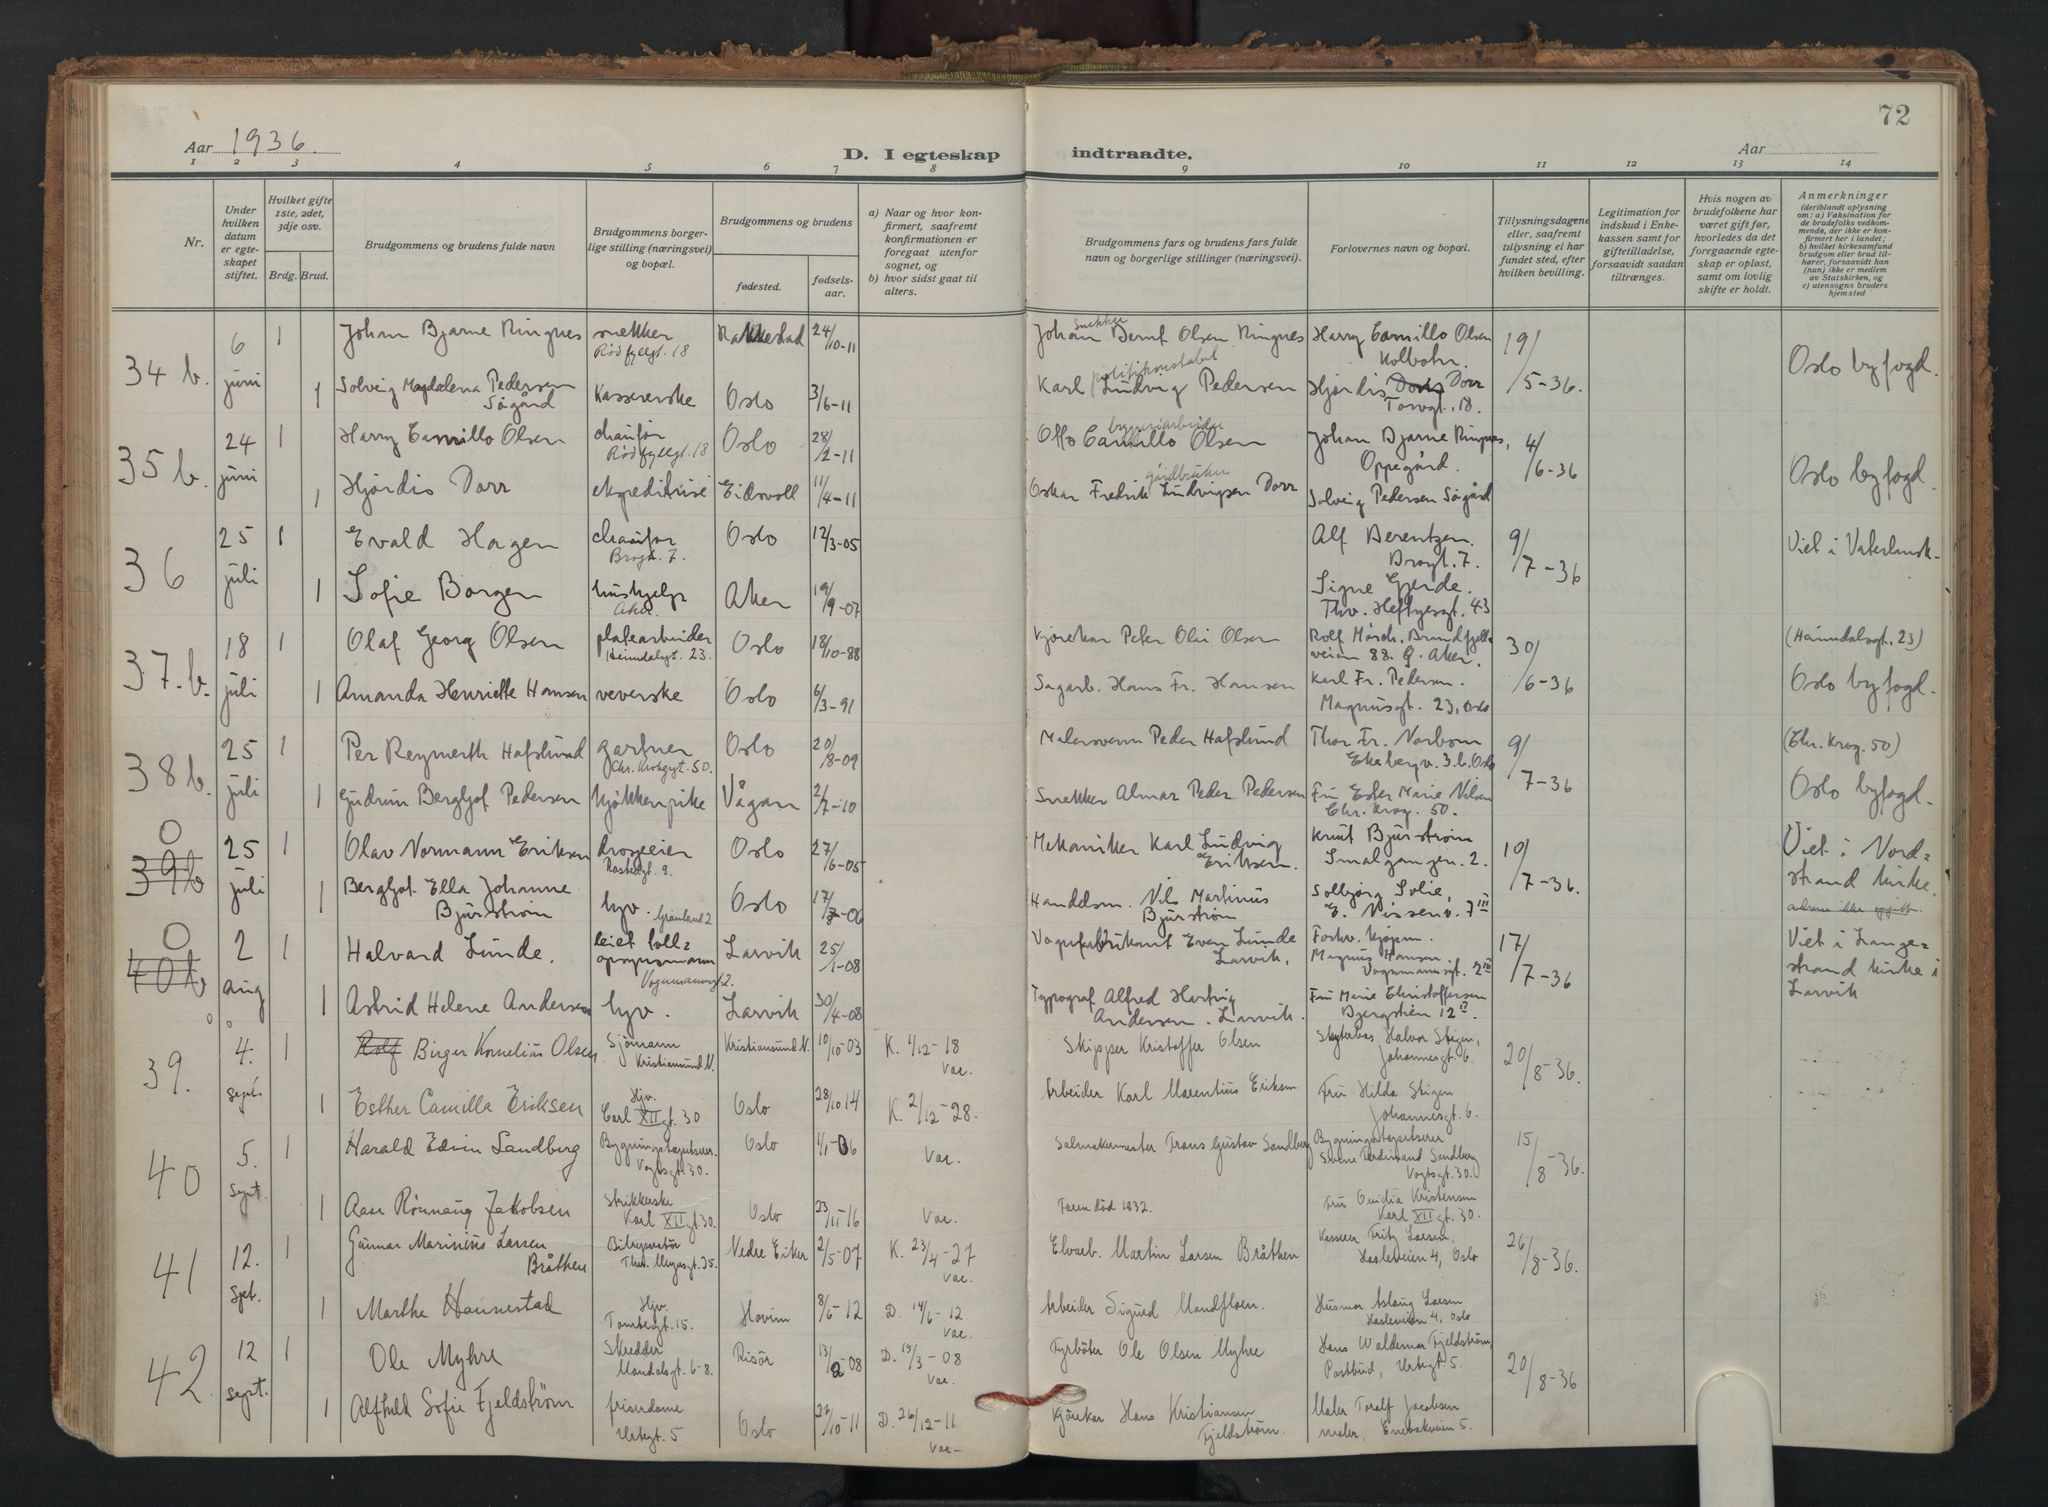 72
Aar 1936.
D. I egteskap indtraadte.
Aar
1 2 3 4 5 6 7 8 9 10 11 12 13 14
Nr.
Under hvilken datum er egteskapet stiftet.
Hvilket gifte 1ste, 2det, 3dje osv.
Brdg. Brud.
Brudgommens og brudens fulde navn
Brudgommens borgerlige stilling (næringsvei) og bopæl.
Brudgommens og brudens
fødested.
fødselsaar.
a) Naar og hvor konfirmert, saafremt konfirmationen er foregaat utenfor sognet, og
b) hvor sidst gaat til alters.
Brudgommens fars og brudens fars fulde navn og borgerlige stillinger (næringsvei).
Forlovernes navn og bopæl.
Tillysningsdagene eller, saafremt tillysning ei har fundet sted, efter hvilken bevilling.
Legitimation for indskud i Enkekassen samt for giftetilladelse, forsaavidt saadan tiltrænges.
Hvis nogen av brudefolkene har været gift før, hvorledes da det foregaaende egteskap er opløst, samt om lovlig skifte er holdt.
Anmerkninger
(deriblandt oplysning om: a) Vaksination for de brudefolks vedkommende, der ikke er konfirmert her i landet;
b) hvilket kirkesamfund brudgom eller brud tilhører, forsaavidt han (hun) ikke er medlem av Statskirken, og
c) utensogns bruders hjemsted
34 b. 6 juni 1 Johan Bjarne Ringnes snekker Rødfyllgt. 18 Rakkestad 24/10-11 Johan Bernt Olsen Ringnes snekker Harry Camillo Olsen Kolbotn 19/5-36. Oslo byfogd.
1 Solveig Magdalena Pedersen Sögård Kassererske Oslo 3/6-11 Karl Ludvig Pedersen politikonstabel Hjördis Dorr Torvgt. 18.
35 b. 24 juni 1 Harry Camillo Olsen chauför Rødfyllgt. 18 Oslo 28/2-11 Otto Camillo Olsen Johan Bjarne Ringnes, Oppegård. 4/6-36 Oslo byfogd.
1 Hjördis Dorr ekspeditrise Eidsvoll 11/4-11 Oskar Fredrik Ludvigsen Dorr gårdbruker Solveig Pedersen Sögård
36 25 juli 1 Evald Hagen chauför Brogt. 7. Oslo 12/3-05 Alf Berentzen. Brogt. 7. 9/7-36 Viet i Vaterlandsk-
1 Sofie Borgen hushjelp Aker. Aker 19/9-07 Signe Gjerde. Thv. Heftyesgt. 43
37.b. 18 juli 1 Olaf Georg Olsen platearbeider Heimdalsgt. 23. Oslo 18/10-88 Kjörekar Peter Olai Olsen Rolf Mörch. Brundfjellveien 88. Ø. Aker. 30/6-36 (Heimdalsgt. 23)
1 Amanda Henriette Hansen veverske Oslo 6/3-91 Sagarb. Hans Fr. Hansen Karl Fr. Pedersen. Magnusgt. 23, Oslo Oslo byfogd.
38b. 25 juli 1 Per Reymerth Hafslund gartner Chr. Krohgsgt. 50. Oslo 20/8-09 Malersvenn Peder Hafslund Thor Fr. Narbom Ekebergv. 3.b. Oslo 9/7-36 (Chr. Krog. 50)
1 Gudrun Bergljot Pedersen kjökkenpike Vågan 2/2-10 Snekker Almar Peder Pedersen Fru Ester Marie Nilsen Chr. Krog. 50. Oslo byfogd.
0 39b 25 juli 1 Olav Normann Eriksen drosjeeier Oslo 27/6-05 Mekaniker Karl Ludvig Eriksen. Knut Bjurström Smalgangen. 2. 10/7-36. Viet i Nordstrand kirke.
1 Bergljot Ella Johanne Bjurström hjv. Grönland 2 Oslo 17/-06 Handelsm. Nils Martinus Bjurström Solbjörg Solie, E. Nissenv. 7 III
0 40b 2 aug 1 Halvard Lunde. Larvik 25/1-08 Vognfabrikant Even Lunde Larvik. Forhv. kjöpm. Magnus Hansen. Vognmannsgt. 2 III 17/7-36 Viet i Langestrand kirke i Larvik
1 Astrid Helene Andersen hjv. Larvik 30/4-08 Typograf Alfred Hartvig Andersen. Larvik. Fru Marie Christoffersen Bjergstien 12
39. 4. sept. 1 Rolf Birger Kornelius Olsen Sjömann Kristiansund N. Kristiansund N. 10/10-03 K. 1/12-18 Vac. Skipper Kristoffer Olsen Halvor Stigen, Johannesgt. 6. 20/8-36.
1 Esther Camilla Eriksen Hjv. Carl XII gt. 30 Oslo 28/10 14 K. 2/12-28. Arbeider Karl Marentius Eriksen Fru Hilda Stigen Johannesgt. 6.
40 5. sept. 1 Harald Edvin Sandberg Bygningstapetserer. Vogtsgt. 30. Oslo 1/1-06 Vac. Salmakermester Frans Gustav Sandberg Bygningstapetserer Ferdinand Sandberg Vogtsgt. 30. 15/8-36.
1 Aase Rönnaug Jakobsen Strikkerske Karl XII gt. 30. Oslo 23/11-16 Vac. Faren död 1932. Fru Kristensen Karl XII gt. 30.
41 12. Sept. 1 Gunnar Marinius Larsen Bråthen Thv. Meyersgt. 35. Nedre Eiker 2/5-07 K. 23/4-27 Vac. Elvarb. Martin Larsen Bråthen Kasserer Fritz Larsen, Hasleveien 4, Oslo 26/8-36.
1 Marthe Hannestad Hjv. Tomtegt. 15. Hovin 8/5-12 D. 14/6-12 Vac. Arbeider Sigurd Mandfloen. Husmor Aslaug Larsen Hasleveien 4, Oslo
42. 12 sept. 1 Ole Myhre Skredder Mandalsgt. 6-8. Risör 13/2-08 D. 15/3-08 Vac. Fyrböter Ole Olsen Myhre Hans Waldemar Fjeldström, Postbud, Urtegt. 5. 20/8-36
1 Alfhild Sofie Fjeldström frisördame Urtegt. 5 Oslo 22/10-11 D. 26/12-11 Vac. Kjörekar Hans Kristiansen Fjeldström. Maler Toralf Jacobsen maler, Enebakveien 5.